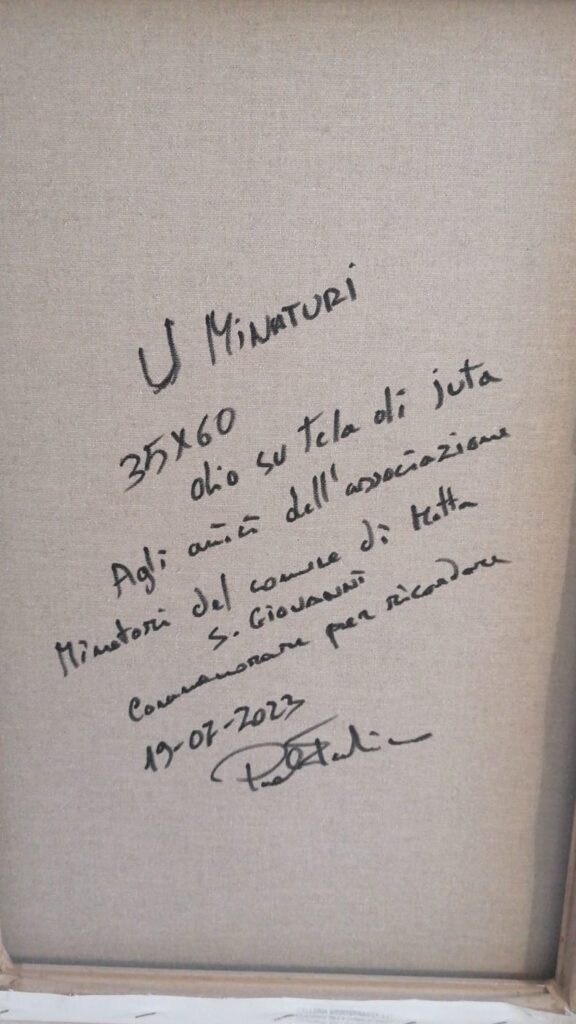 U MINATURI
35X60
olio su tela di juta
Agli amici dell'associazione
Minatori del comune di Motta
S. GIOVANNI
Commemorare per ricordare
19-07-2023